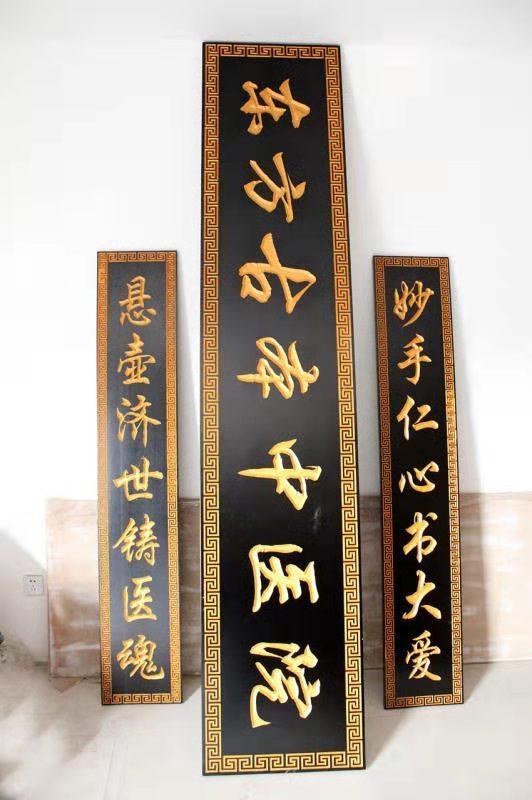 东方古中医院
妙手仁心书大爱
悬壶济世铸医魂